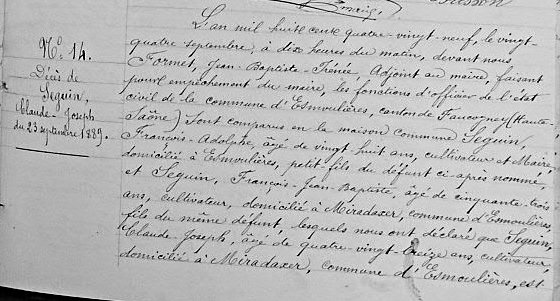 N° 14.
Décès de
Seguin,
Claude-Joseph
du 23 septembre 1889.
L'an mil huit cent quatre-vingt-neuf, le vingt-
quatre septembre, à dix heures du matin, devant nous
Formet, Jean-Baptiste-Irénée, Adjoint au maire, faisant
pour empêchement du maire, les fonctions d'officier de l'état
civil de la commune d'Esmoulières, canton de Faucogney (Haute-
Saône) Sont comparus en la maison commune Seguin,
François-Adolphe, âgé de vingt huit ans, cultivateur et Maire,
domicilié à Esmoulières, petit fils du défunt ci-après nommé,
et Seguin, François-Jean-Baptiste, âgé de cinquante-trois
ans, cultivateur, domicilié à Miradaxer, commune d'Esmoulières,
fils du même défunt, lesquels nous ont déclaré que Seguin,
Claude-Joseph, âgé de quatre-vingt-treize ans, cultivateur,
domicilié à Miradaxer, commune d'Esmoulières, est